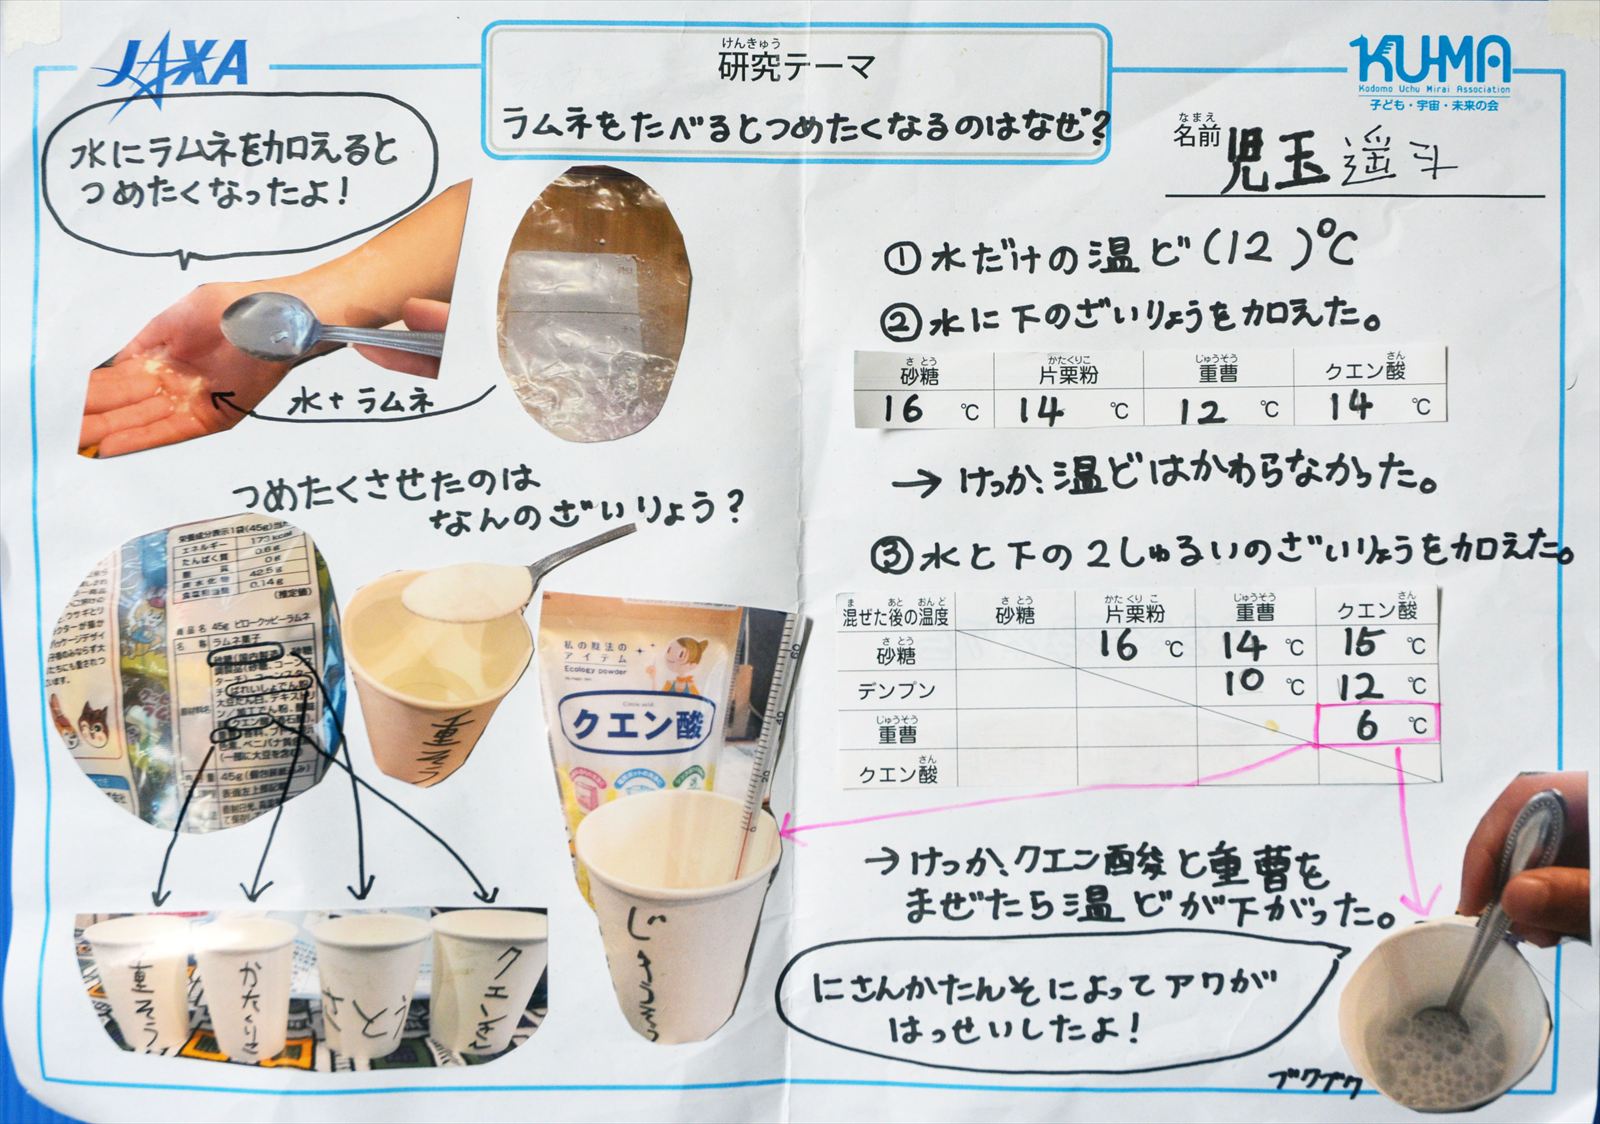 JAXA
けんきゅう
研究テーマ
ラムネをたべるとつめたくなるのはなぜ?
KU-MA
Kodomo Uchu Mirai Association
子ども・宇宙・未来の会
なまえ
名前 児玉遥斗
水にラムネを加えると
つめたくなったよ!
水+ラムネ
つめたくさせたのは
なんのざいりょう?
栄養成分表示1袋(45g)当
エネルギー 173kcal
たんぱく質 0.6g
脂質 0g
炭水化物 42.5g
食塩相当量 0.14g
(推定値)
商品名 45g ピロークッピーラムネ
名称 ラムネ菓子
重そう
私の魔法の
アイテム
Ecology powder
Citric acid
クエン酸
じゅうそう
重そう
かたくりこ
さとう
クエンさん
①水だけの温ど(12)℃
②水に下のざいりょうを加えた。
さとう かたくりこ じゅうそう さん
砂糖 片栗粉 重曹 クエン酸
16℃ 14℃ 12℃ 14℃
→けっか、温どはかわらなかった。
③水と下の2しゅるいのざいりょうを加えた。
ま あと おんど さとう かたくりこ じゅうそう さん
混ぜた後の温度 砂糖 片栗粉 重曹 クエン酸
さとう
砂糖 16℃ 14℃ 15℃
デンプン 10℃ 12℃
じゅうそう
重曹 6℃
さん
クエン酸
→けっか、クエン酸と重曹を
まぜたら温どが下がった。
にさんかたんそによってアワが
はっせいしたよ!
ブクブク